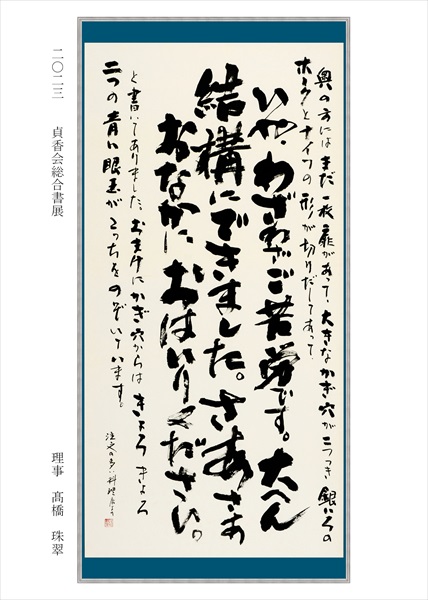 奥の方にはまだ一枚扉があって、大きなかぎ穴が二つつき 銀いろの
ホークとナイフの形が切りだしてあって、
いや、わざわざご苦労です。大へん
結構にできました。さあさあ
おなかにおはいりください。
と書いてありました。おまけにかぎ穴からはきょろきょろ
二つの青い眼玉がこっちをのぞいています。
注文の多い料理店
二〇二三 貞香会総合書展 理事 髙橋 珠翠